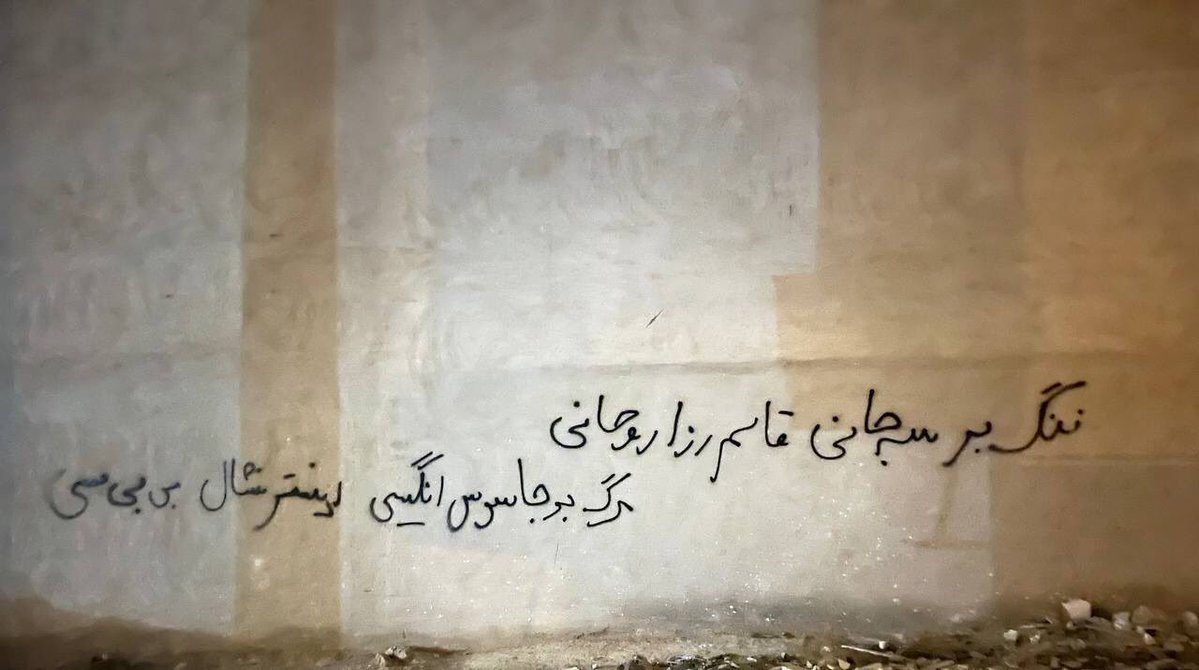 ننگ بر سه جانی قاسم رزا روحانی
مرگ بر جاسوس انگیسی اینترنشال بی بی سی